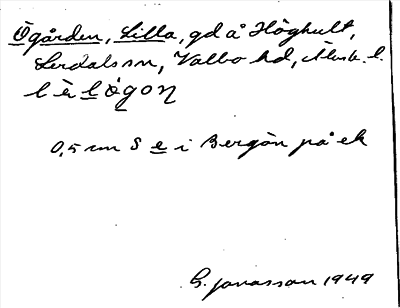 Ögården, Lilla, gd å Höghult,
Lerdals sn, Valbo hd, Älvsb. l.
lèlögoɳ
0,5 cm S e i Bergön på ek
G. Jonasson 1949